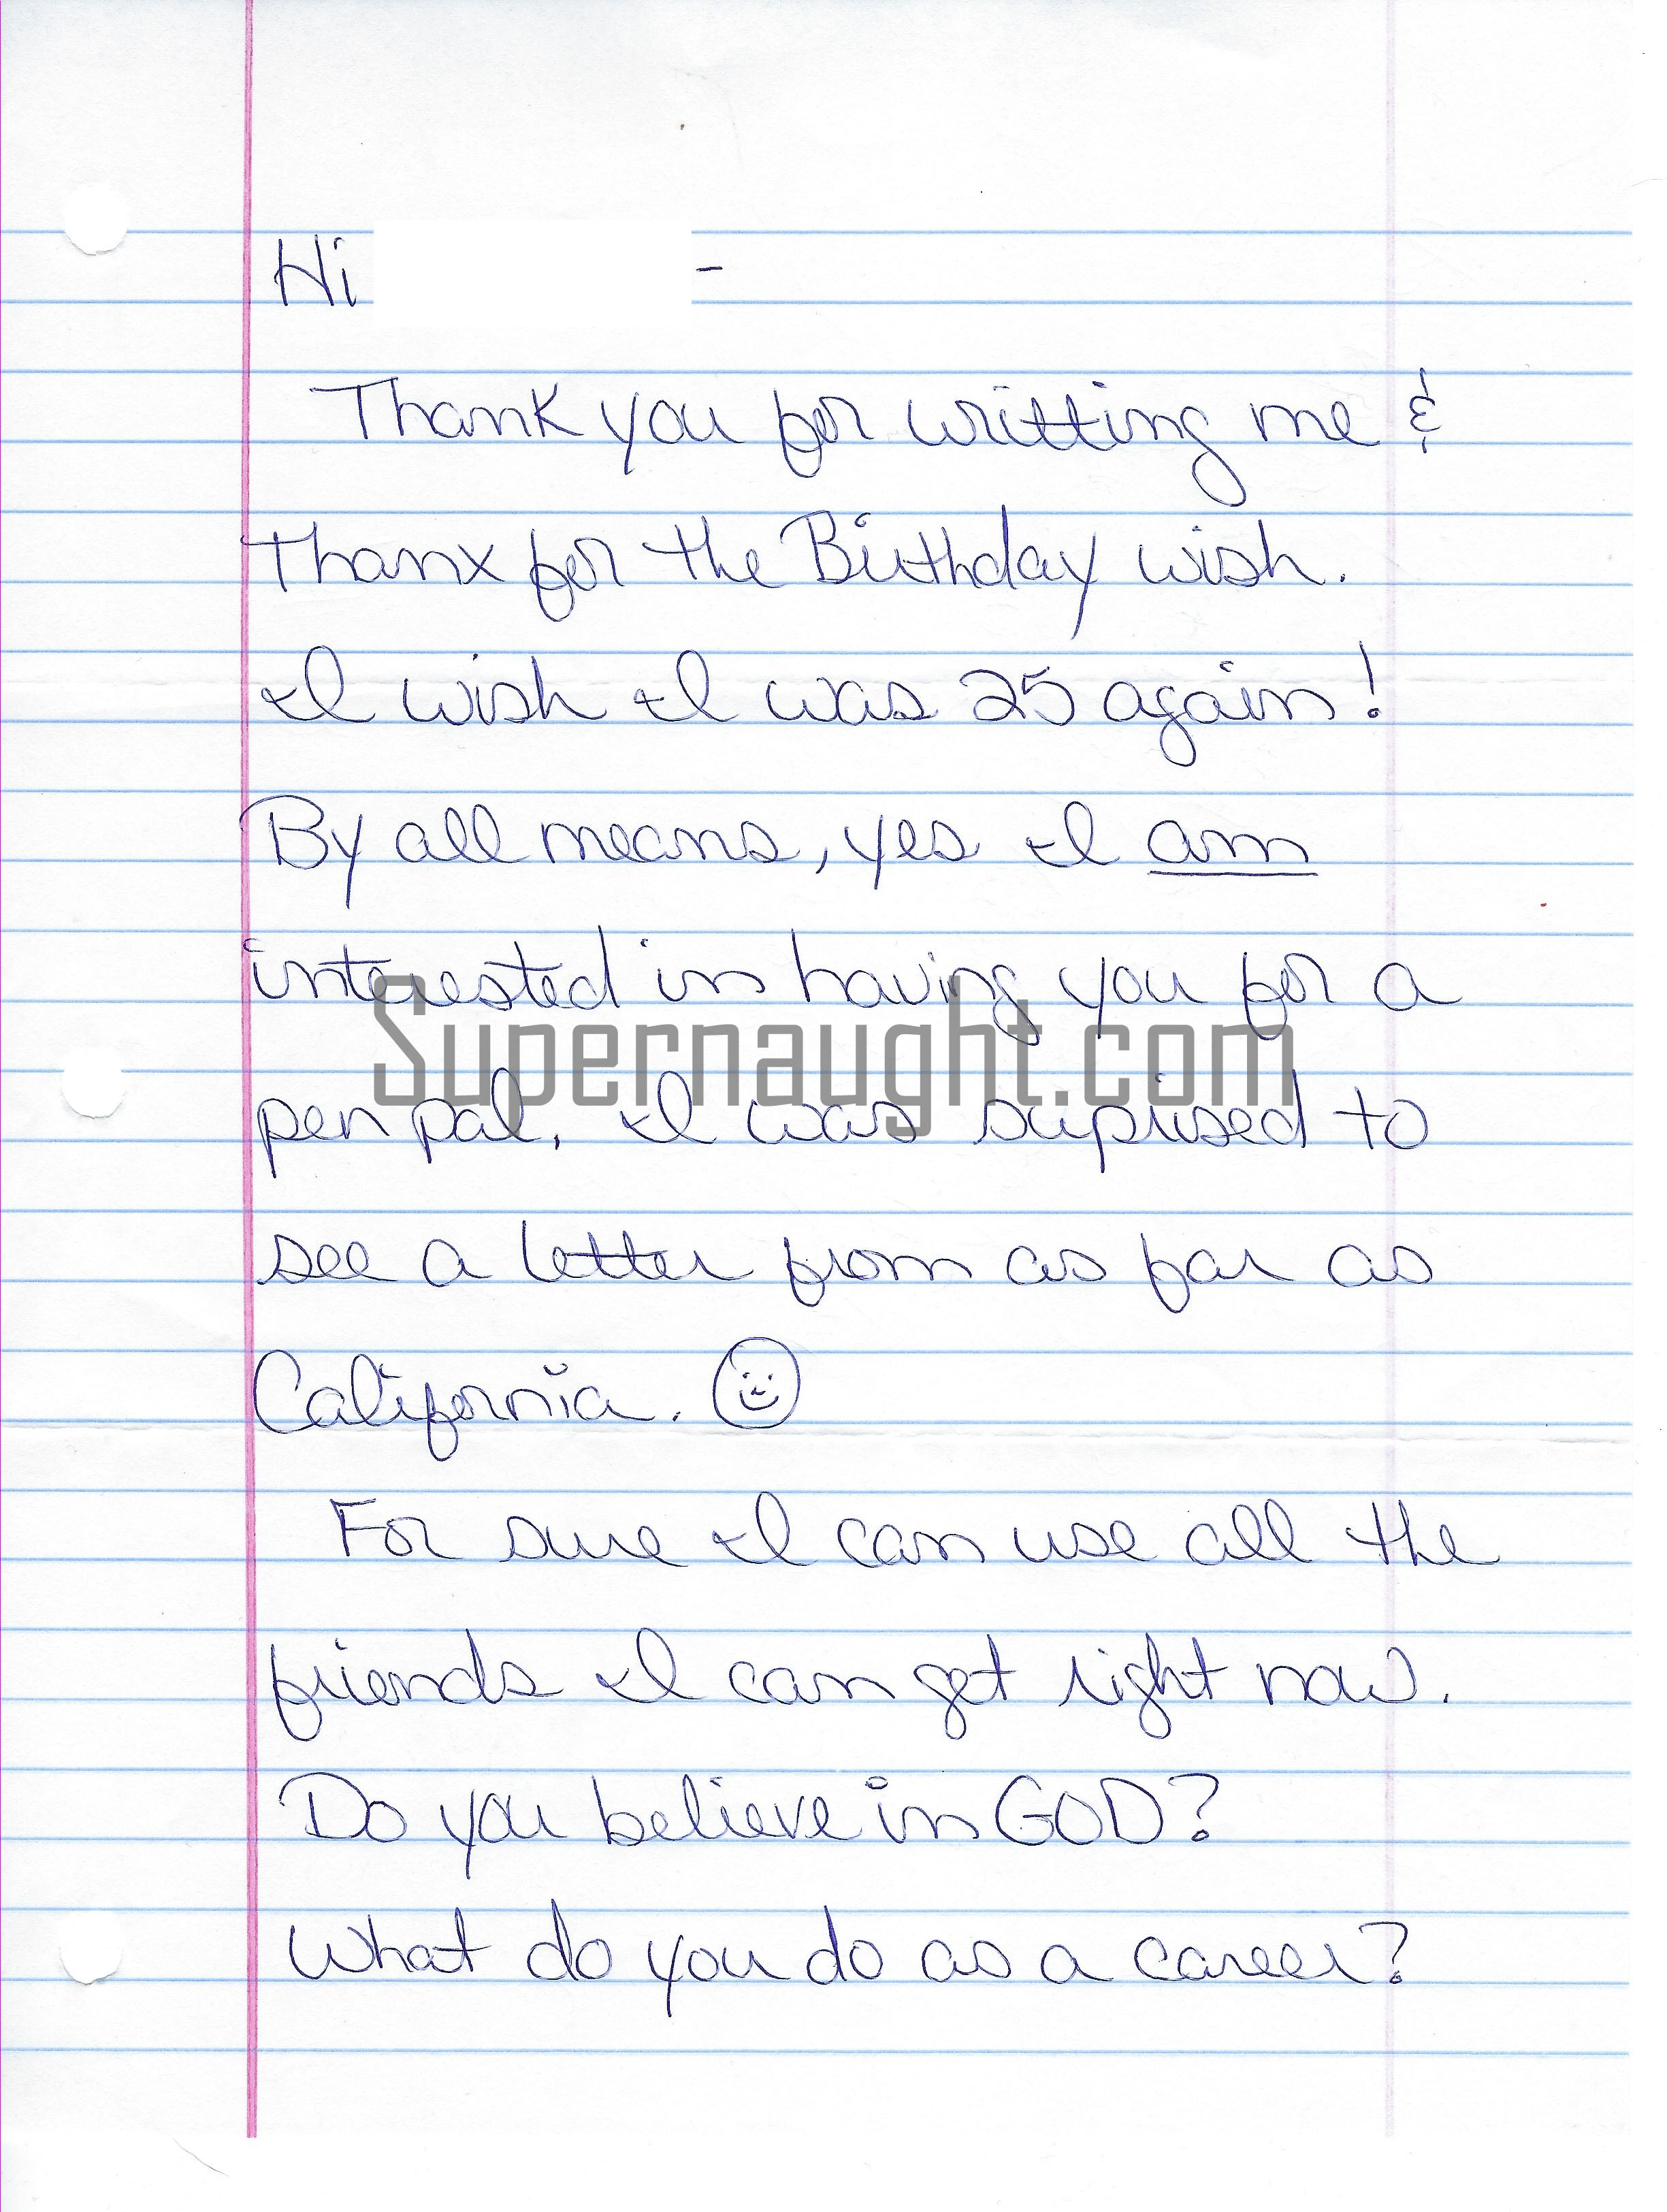 Hi -
Thank you for writting me &
Thanx for the Birthday wish.
I wish I was 25 again!
By all means, yes I am
interested in having you for a
Supernaught.com
pen pal. I was suprised to
see a letter from as far as
California. ☺
For sure I can use all the
friends I can get right now.
Do you believe in GOD?
What do you do as a career?